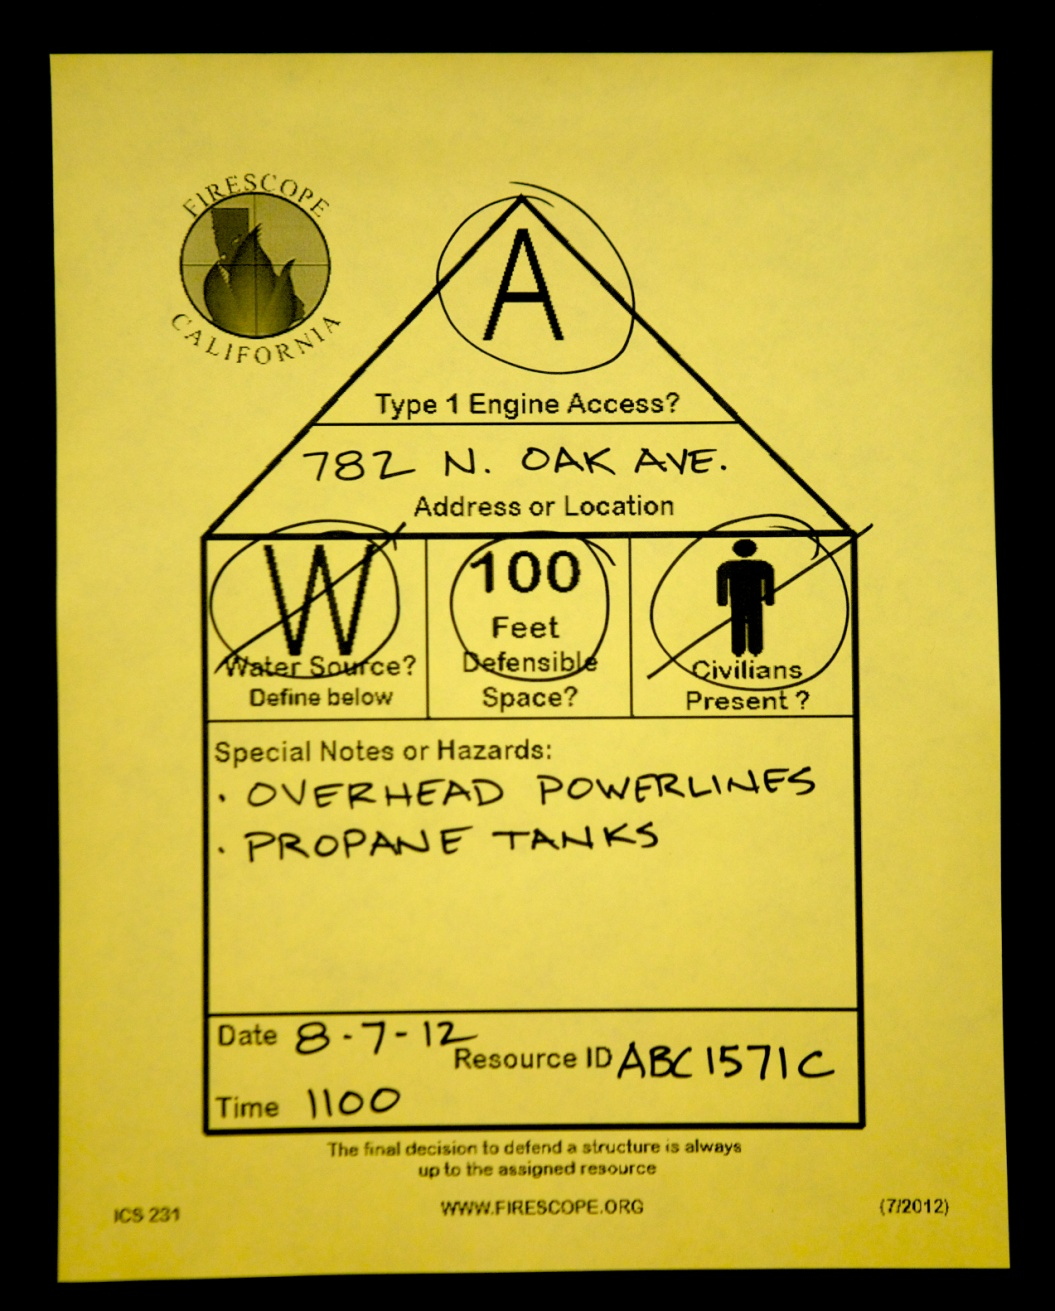 FIRESCOPE
CALIFORNIA
A
Type 1 Engine Access?
782 N. OAK AVE.
Address or Location
W
Water Source?
Define below
100
Feet
Defensible
Space?
Civilians
Present ?
Special Notes or Hazards:
· OVERHEAD POWERLINES
· PROPANE TANKS
Date 8-7-12
Resource ID ABC1571C
Time 1100
The final decision to defend a structure is always
up to the assigned resource
ICS 231 WWW.FIRESCOPE.ORG (7/2012)